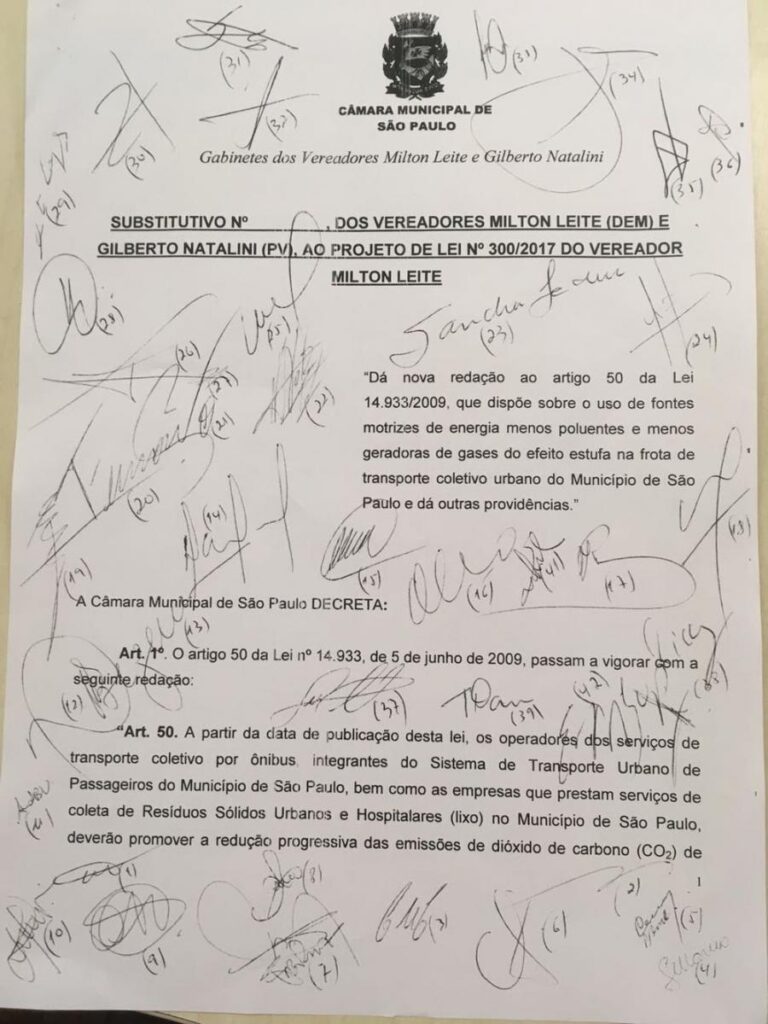 (31)
(33)
(34)
(32)
(30)
(35)
(36)
(29)
CÂMARA MUNICIPAL DE
SÃO PAULO
Gabinetes dos Vereadores Milton Leite e Gilberto Natalini
SUBSTITUTIVO Nº , DOS VEREADORES MILTON LEITE (DEM) E
GILBERTO NATALINI (PV), AO PROJETO DE LEI Nº 300/2017 DO VEREADOR
MILTON LEITE
(28)
(25)
Sandra
(23)
(24)
(26)
(27)
(21)
(22)
“Dá nova redação ao artigo 50 da Lei
14.933/2009, que dispõe sobre o uso de fontes
motrizes de energia menos poluentes e menos
geradoras de gases do efeito estufa na frota de
transporte coletivo urbano do Município de São
Paulo e dá outras providências.”
(20)
(14)
(18)
(19)
(15)
(16)
(41)
(17)
A Câmara Municipal de São Paulo DECRETA:
(13)
Art. 1º. O artigo 50 da Lei nº 14.933, de 5 de junho de 2009, passam a vigorar com a
seguinte redação:
(12)
(37)
(39)
(42)
(38)
“Art. 50. A partir da data de publicação desta lei, os operadores dos serviços de
transporte coletivo por ônibus, integrantes do Sistema de Transporte Urbano de
Passageiros do Município de São Paulo, bem como as empresas que prestam serviços de
coleta de Resíduos Sólidos Urbanos e Hospitalares (lixo) no Município de São Paulo,
deverão promover a redução progressiva das emissões de dióxido de carbono (CO₂) de
(11)
1
(1)
(8)
(2)
(10)
(9)
(7)
(3)
(6)
(5)
(4)